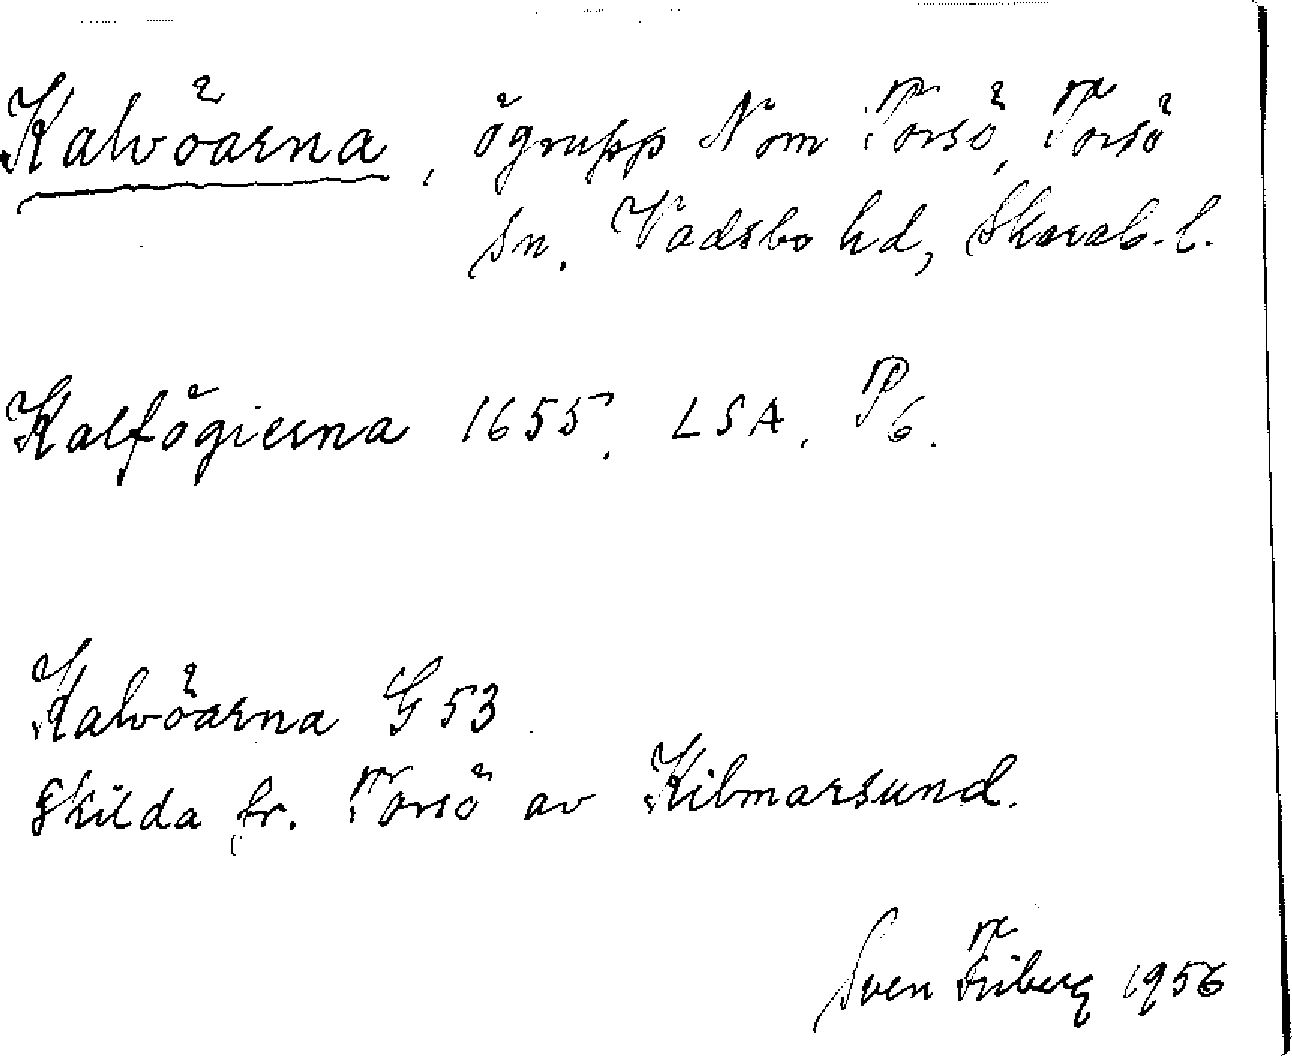 Kalvöarna, ögrupp N om Torsö, Torsö
sn. Vadsbo hd, Skarab. l.
Kalfögierna 1655. LSA. P6.
Kalvöarna G 53
Skilda fr. Torsö av Kilmarsund.
Sven Friberg 1956